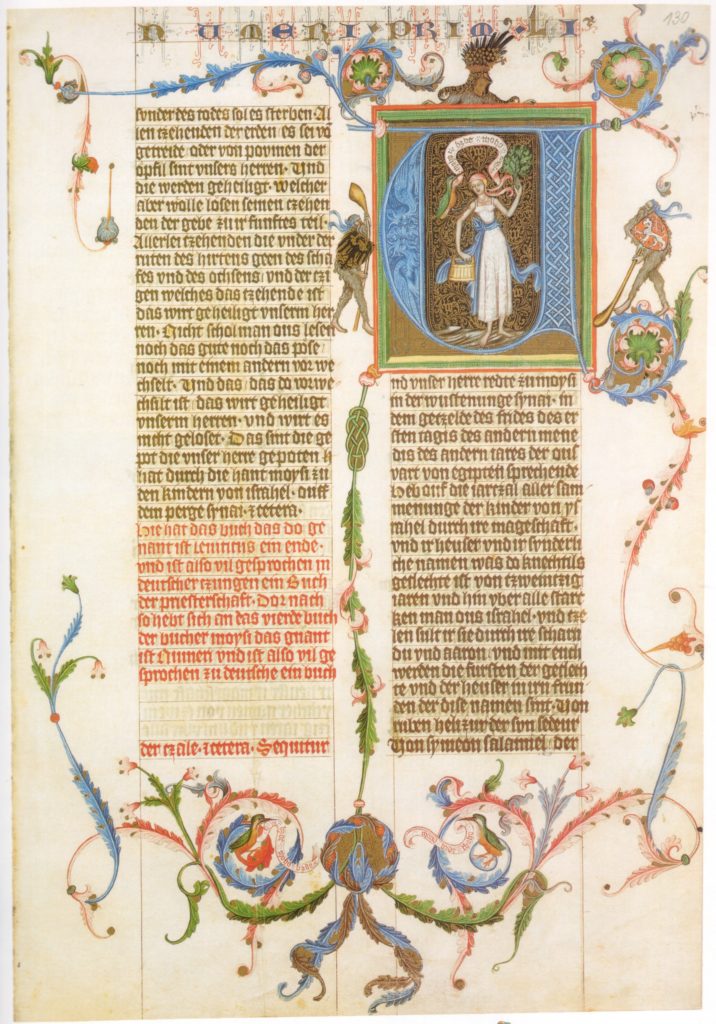 NUMERI · PRIM · LI
130
vnder des todes sol es sterben · Al
len tzehenden der erden es sei võ
getreide oder von povmen der
opfil sint vnsers herren · Vnd
die werden geheiligt · welcher
aber wolle losen seinen tzehen
den der gebe zu ir funftes teil ·
Allerlei tzehenden die vnder der
ruten des hirtens geen des scha
fes vnd des ochsens · vnd der tzi
gen welches das tzehende ist
das wirt geheiligt vnserm her
ren · Nicht schol man aus lesen
noch das gute noch das pose
noch mit einem andern vor we
chselt · Vnd das · das do vorwe
chslt ist · das wirt geheiligt
vnserm herren · vnd wirt es
nicht geloset · Das sint die ge
pot die vnser herre gepoten
hat durch die hant moysi zu
den kindern von israhel · ouff
dem perge synai · et cetera ·
Hie hat das buch das do ge
nant ist leuiticus ein ende ·
vnd ist also vil gesprochen in
deutscher tzungen ein Buch
der priesterschaft · Dor nach
so hebt sich an das vierde buch
der bucher moysi das gnant
ist Numeri vnd ist also vil ge
sprochen zu deutsche ein buch
der czale · et cetera · Sequitur
nd vnser herre redte zu moysi
in der wustenunge synai · in
dem getzelde des frides des er
sten tagis des andern mene
dis des andern iares der ous
vart von egipten sprechende
Heb ouf die iartzal aller sam
menunge der kinder von ys
rahel durch ire mageschaft ·
vnd ir heuser vnd ir synderli
che namen was do knechtlis
geslechte ist von tzweintzig
iaren vnd hin vber alle starc
ken man ous israhel · vnd tze
len sult ir sie durch ire scharn
du vnd aaron · vnd mit euch
werden die fursten der geslech
te vnd der heuser in irn frun
den der dise namen sint · Von
ruben helizur der son sedeur
Von symeon salamiel · der